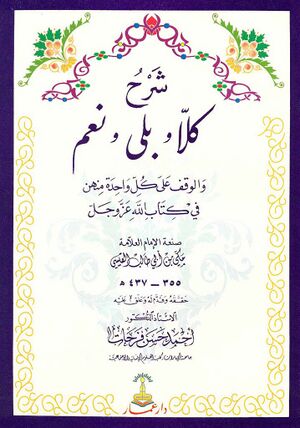 شَرْحُ
كلّا وبلى ونعم
والوقف على كلّ واحدة منهن
في كتاب الله عزّ وجلّ
صنعة الإمام العلامة
مكي بن أبي طالب القيسي
٣٥٥ - ٤٣٧ هـ
حققه وقدم له وعلق عليه
الأستاذ الدكتور
أحمد حسن فرحات
دار عمار